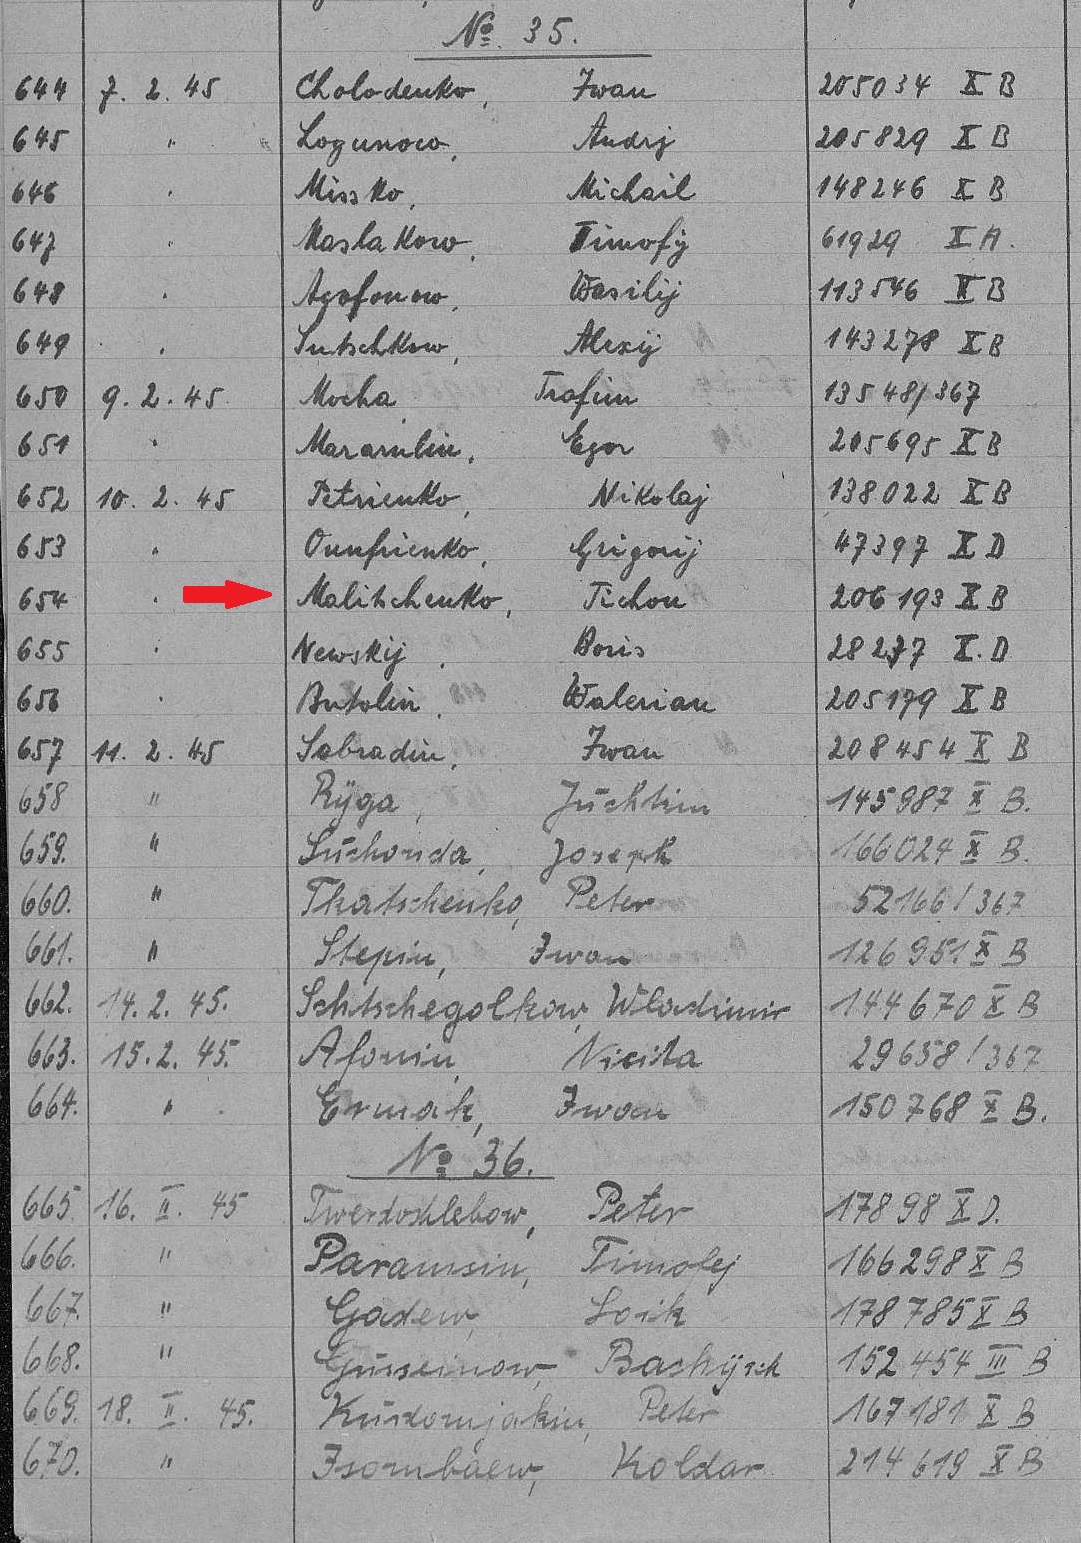 № 35.
644 7. 2. 45 Cholodenko, Iwan 205034 X B
645 " Logunow, Andrj 205829 X B
646 " Missko, Michail 148246 X B
647 " Maslakow, Timofij 61929 X A.
648 " Agafonow, Wasilij 113546 X B
649 " Sutschkow, Alexij 143278 X B
650 9. 2. 45. Mocha, Trofim 13548/367
651 " Maramlin, Egor 205695 X B
652 10. 2. 45 Petrienko, Nikolaj 138022 X B
653 " Onufrienko, Grigorij 47397 X D
654 " Malitschenko, Tichon 206193 X B
655 " Newskij, Boris 28277 X. D
656 " Butolin, Walerian 205179 X B
657 11. 2. 45 Sabradin, Iwan 208454 X B
658 " Ryga, Juchtim 145987 X B.
659. " Suchonda, Joseph 166024 X B.
660. " Tkatschenko, Peter 52166/367
661. " Stepin, Iwan 126951 X B
662. 14. 2. 45. Schtschegolkow, Wladimir 144670 X B
663. 15. 2. 45. Afonin, Nicita 29658/367
664. " Ermak, Iwan 150768 X B.
№ 36.
665. 16. II. 45 Twerdochlebow, Peter 17898 X D.
666. " Paramsin, Timofej 166298 X B
667. " Gadew, Soik 178785 X B
668. " Gusseinow, 152454 III B
669. 18. II. 45. Kusdomjakin, Peter 167181 X B
670. " Isombaew, Koldar 214619 X B